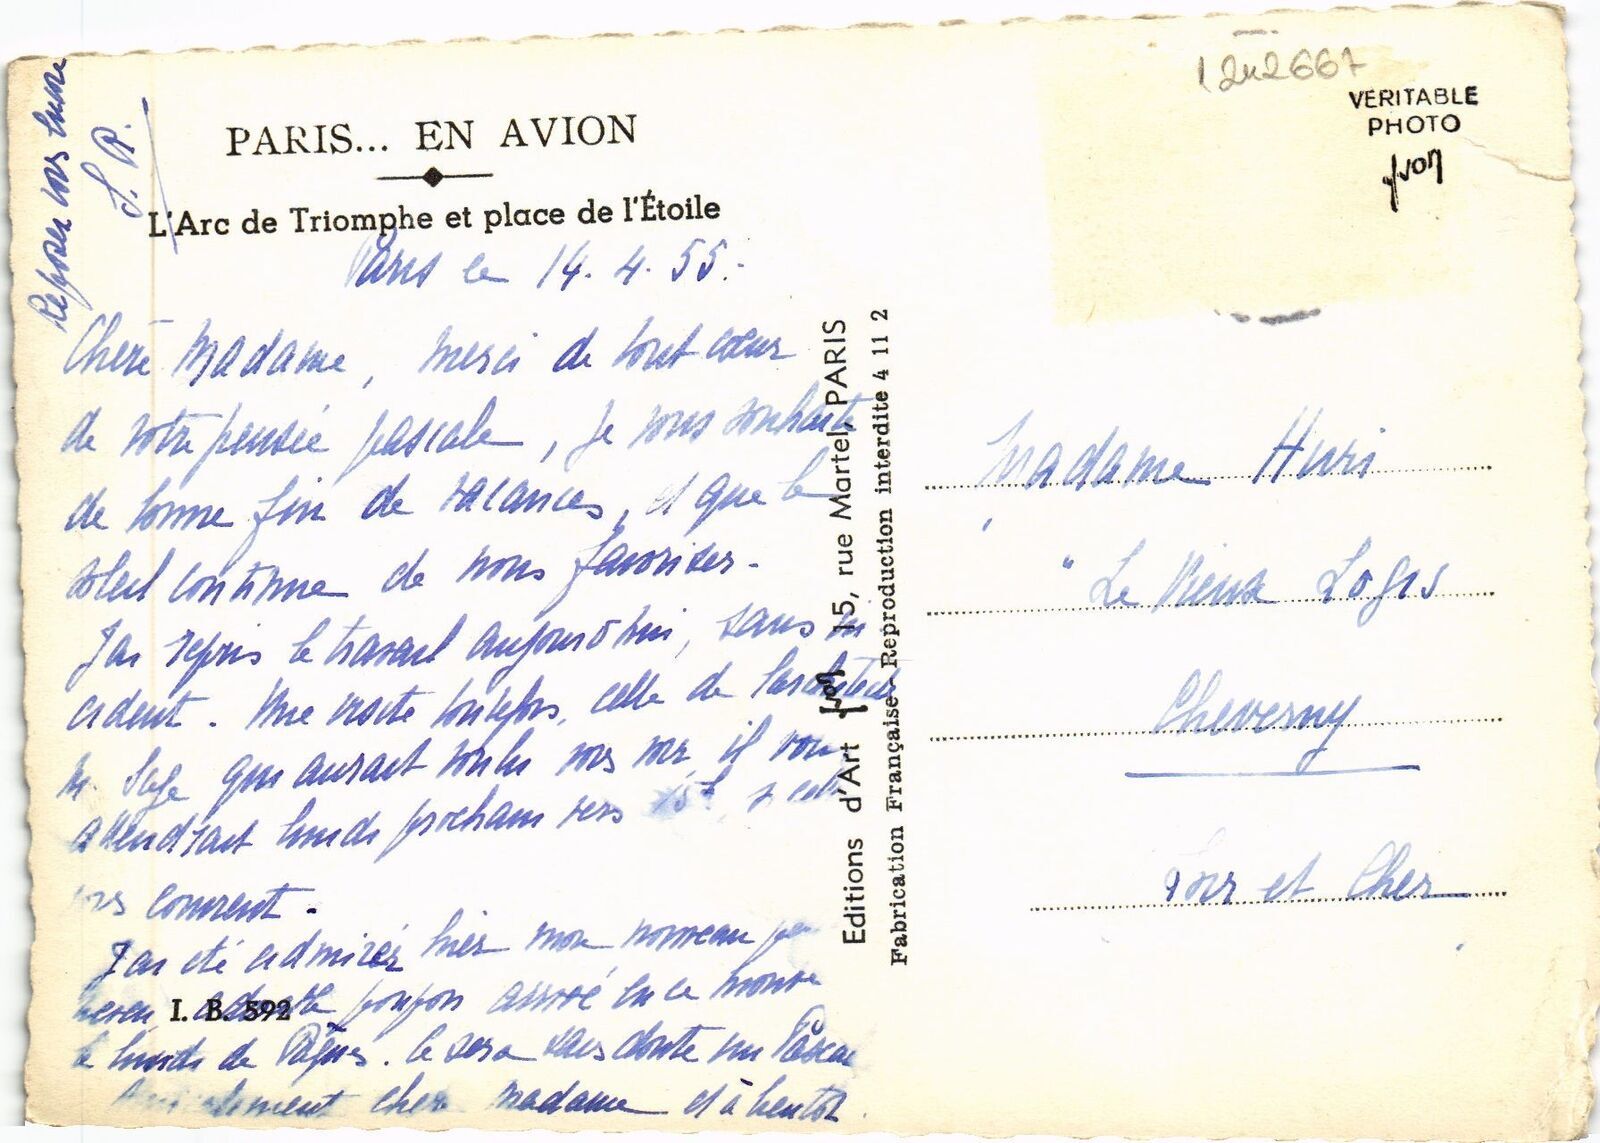 1242667
VERITABLE
PHOTO
Yvon
PARIS... EN AVION
L'Arc de Triomphe et place de l'Étoile
Paris le 14.4.55.
Chère Madame, Merci de tout cœur
de votre pensée pascale, je vous souhaite
de bonne fin de vacances, et que le
soleil continue de vous favoriser.
J'ai repris le travail aujourd'hui, sans in
cident. Une visite toutefois, celle de l'architecte
M. Sage qui aurait voulu vous voir, il vous
attendrait lundi prochain vers 15h, si cela
vous convient.
J'ai été admirer hier mon nouveau pe
neveu adorable poupon arrivé en ce monde
le lundi de Pâques. Ce sera sans doute un Pascal
Amicalement chère Madame et à bientôt.
Reposez vous encore
S. P.
I. B. 592
Editions d'Art Yvon 15, rue Martel, PARIS
Fabrication Française - Reproduction interdite 4 11 2
Madame Huri
"Le Vieux Logis
Cheverny
Loir et Cher